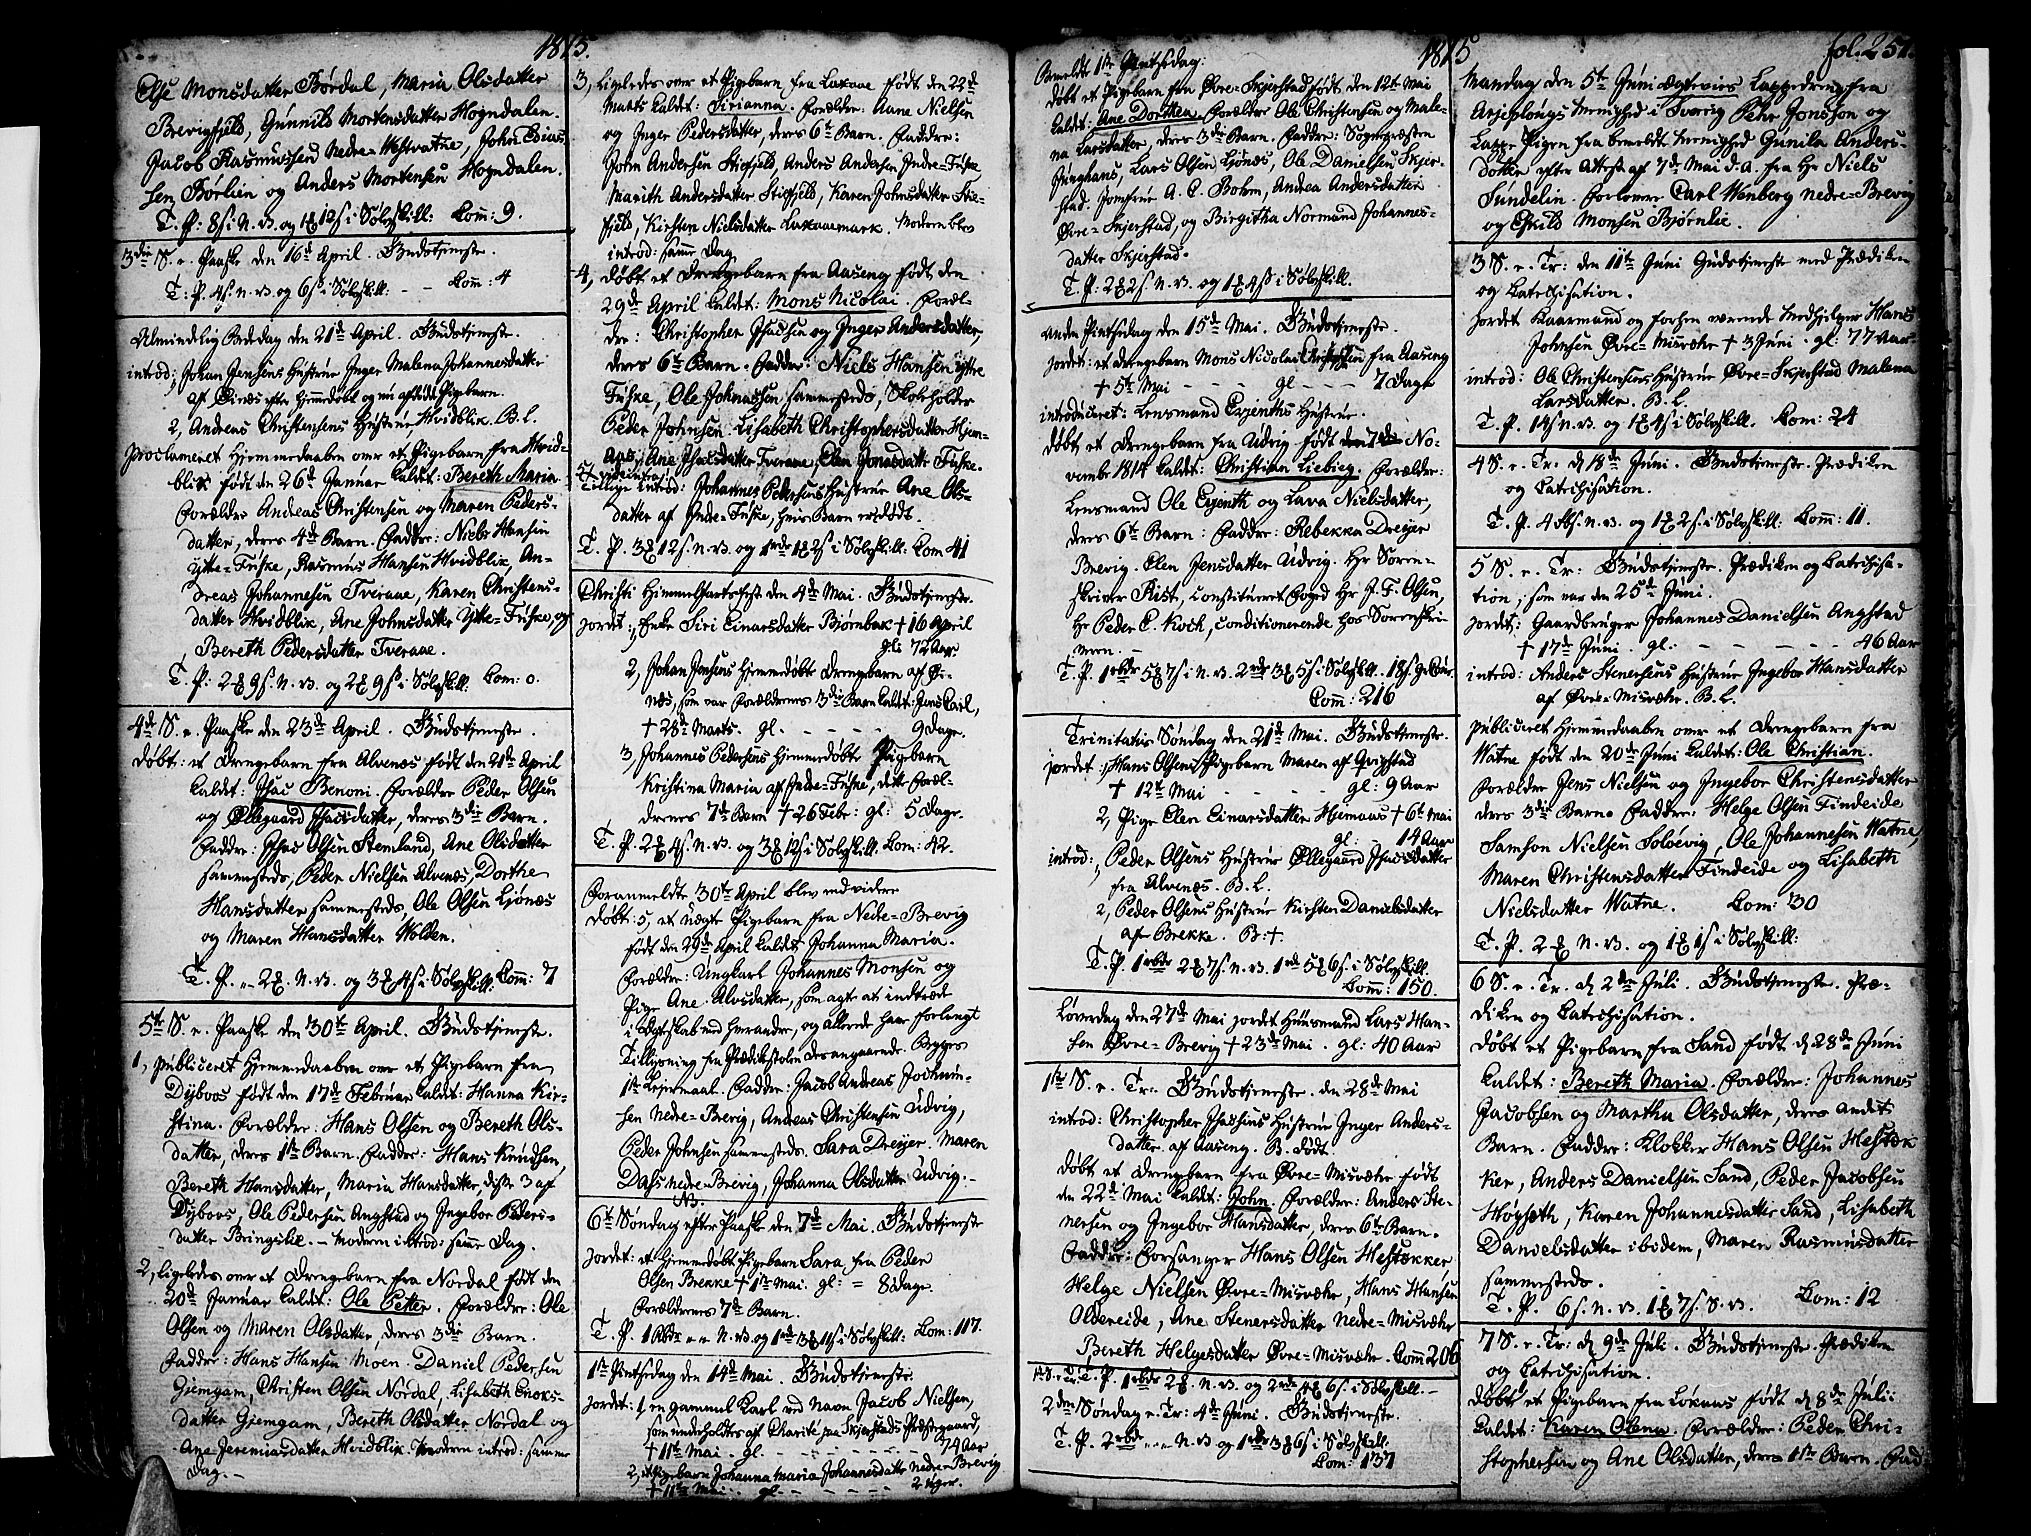 1815.
Else Monsdatter Børdal, Maria Olsdatter
Brevigfjeld, Gunnild Mortensdatter Hogndalen.
Jacob Rasmussen Nedre-Vestvatne, John Esias-
sen Børlien og Anders Mortensen Hogndalen.
T. P. 8 s. i N. V. og 12 s i Sølvskill: Com: 9.
3die S. e. Paaske den 16de April. Gudstjeneste.
T: P. 4 s. N. V. og 6 s i Sølvskill: Com: 4
Almindelig Bededag den 21de April. Gudstjeneste.
introd: Johan Jensens Hustrue Inger Malena Johannesdatter
2, Andreas Christensens Hustrue Hvidblik. B. L.
Proclameret Hjemmedaaben over et Pigebarn fra Hvid-
blik født den 26de Januar kaldet: Bereth Maria
Forældre Andreas Christensen og Maren Peders-
datter, deres 4de Barn. Fadder: Niels Hansen
Ytre-Fuske, Rasmus Hansen Hvidblik, An-
dreas Johannesen Tveraae, Karen Christens-
datter Hvidblik, Ane Johnsdatter Ytre-Fuske og
Bereth Pedersdatter Tveraae.
T. P: 2 9 s. N. V. og 2 9 s i Sølvskill. Com: 0.
4de S. e. Paaske den 23de April. Gudstjeneste.
Døbt: et Drengebarn fra Alvenæs født den 21de April
kaldet: Isac Benoni. Forældre Peder Olsen
og Ellegaard Isacsdatter, deres 3die Barn.
Fadder: Isac Olsen Stemland, Ane Olsdatter
sammesteds, Peder Nielsen Alvenæs, Dorthe
Hansdatter sammesteds, Ole Olsen Ljønæs
og Maren Hansdatter Wolden.
T. P. 2 . N. V. og 3 4 s i Sølvskill. Com: 7
5te S. e. Paaske den 30te April. Gudstjeneste.
1, publiceret Hjemmedaaben over et Pigebarn fra
Dybvos født den 17de Februar kaldet: Hanna Kir-
stina. Forældre: Hans Olsen og Bereth Ols-
datter, deres 1ste Barn. Fadder: Hans Knudsen,
Bereth Hansdatter, Maria Hansdatter, disse 3 af
Dybvos, Ole Pedersen Angstad og Ingebor Peders-
datter Bringslie. - Moderen introd: samme Dag.
2, ligeledes over et Drengebarn fra Nordal født den
20de Januar kaldet: Ole Petter. Forældre: Ole
Olsen og Maren Olsdatter, deres 3die Barn.
Fadder: Hans Hansen Moen. Daniel Pedersen
Gjemgam, Christen Olsen Nordal, Lisabeth Enoks-
datter Gjemgam, Bereth Olsdatter Nordal og
Ane Jeremiasdatter Hvidblik. Moderen introd: samme
Dag. -
3, ligeledes over et Pigebarn fra Laxaae født den 22de
Marts kaldet: Sirianna. Forældre: Aane Nielsen
og Inger Pedersdatter, deres 6te Barn. Fadder:
John Andersen Stifjeld, Anders Andersen Indre-Fuske,
Marith Andersdatter Stifjeld, Karen Johnsdatter Sti-
fjeld, Kirsten Nielsdatter Laxaaemark. Moderen blev
introd: samme Dag.
4, døbt et Drengebarn fra Aaseng født den
29de April kaldet: Mons Nicolai. Foræl-
dre: Christopher Isachsen og Inger Andersdatter,
deres 6te Barn. Fadder: Niels Hansen Ytre
Fuske, Ole Johnsen sammesteds, Skoleholder
Peder Johnsen. Lisabeth Christophersdatter Hjem-
aas, Ane Isacsdatter Tveraae, Elen Jonasdatter Fuske.
tillige introd: Johannes Pedersens Hustrue Ane Ols-
datter af Indre-Fuske, hvis Barn er dødt.
T. P. 3 12 s. N. V. og 1 2 s i Sølvskill: Com 41
Christi Himmelfartsfest den 4de Mai. Gudstjeneste.
Jordet: 1, Enke Siri Einarsdatter Bjørnbak + 16 April
gl: 72 Aar.
2, Johan Jensens Hjemmedøbte Drengebarn af Øi-
næs, som var Forældrenes 3die Barn kaldet: Jens Carl,
+ 28de Marts. gl. - - - 9 Dage.
3, Johannes Pedersens Hjemmedøbte Pigebarn
Kristina Maria af Indre-Fuske, dette Foræl-
drenes 7de Barn + 26 Febr: gl: 5 Dage.
T. P. 2 4 s. N. V. og 3 12 s i Sølvskill. Com: 42.
Foranmeldte 30te April blev endvidere
Døbt: 5, et uægte Pigebarn fra Nedre-Brevig
født den 29de April kaldet Johanna Maria.
Forældre: Ungkarl Johannes Monsen og
Pige Ane Alvsdatter, som agte at indtræde
i Ægteskab med hverandre, og allerede har forlangt
Tillysning fra Prædikestolen desangaaende. Begges
1ste Leiermaal. Fadder: Jacob Andreas Jochum-
sen Nedre-Brevig, Andreas Christensen Udvig,
Peder Johnsen sammesteds. Sara Dreyer. Maren
Dass Nedre-Brevig, Johanna Olsdatter Udvig. -
NB.
6te Søndag efter Paaske den 7de Mai. Gudstjeneste
Jordet: et hjemmedøbt Pigebarn Sara, fra Peder
Olsen Brekke + 1ste Mai. gl: = 8 Dage.
Forældrenes 7de Barn.
T. P. 1 Rbdr N. V. og 1 rd 3 11 s i Sølvskill: Com: 117.
1ste Pintsedag den 14de Mai. Gudstjeneste.
Jordet: 1, en gammel Karl ved Navn Jacob Nielsen,
som underholdtes af Charité paa Skjerstads Præstegaard,
+ 11te Mai. gl. - - - 74 Aar
2, et Pigebarn Johanna Maria Johannesdatter Nedre-Brevig
+ 11te Mai. gl - - - 2 Uger.
1815
Anmeldte 1ste Pintsedag:
Døbt et Pigebarn fra Øvre-Skjerstad født den 12te Mai
kaldet: Ane Dorthea. Forældre Ole Christensen og Male-
na Larsdatter, deres 3die Barn. Fadder: Sognepræsten
Junghans, Lars Olsen Ljønæs, Ole Danielsen Skjer-
stad. Jomfrue A. C. Bohm, Andrea Andersdatter
Øvre-Skjerstad, og Birgitha Normand Johannes-
datter Skjerstad.
T. P. 2 2 s. N. V. og 1 4 s i Sølvskill.
Anden Pintsedag den 15de Mai. Gudstjeneste.
Jordet: et Drengebarn Mons Nicolai Christophersen fra Aaseng
+ 5te Mai - - - gl - - - 7 Dage
introduceret: Lensmand Erjenths Hustrue.
Døbt et Drengebarn fra Udvig født den 7de No-
vember 1814 kaldet: Christian Liebieg. Forældre:
Lensmand Ole Erjenth og Lava Nielsdatter,
deres 6te Barn: Fadder: Rebekka Dreyer
Brevig. Elen Jensdatter Udvig. Hr Soren-
skriver Rist, constitueret Foged Hr J. F. Olsen,
Hr Peder C. Koch, conditionerende hos Sorenskri-
veren. -
T. P. 1 rbdr 5 7 s. N. V. 2 rdr 3 5 s i Sølvskill.
Com: 216
Trinitatis Søndag den 21de Mai. Gudstjeneste.
jordet: 1, Hans Olsens Pigebarn Maren af Qvigstad
+ 12te Mai - - - gl: 9 Aar
2, Pige Elen Einarsdatter Hjemaas + 6te Mai
gl: 14 Aar
introd: 1, Peder Olsens Hustrue Ellegaard Isacsdatter
fra Alvenæs. B. L.
2, Peder Olsens Hustrue Kirsten Danielsdatter
af Brekke. B: +.
T. P. 1 rbdr 2 7 s. N. V. 1 rd 5 6 s i Sølvskill.
Com: 150.
Løverdag den 27de Mai jordet Huusmand Lars Han-
sen Øvre-Brevig + 23de Mai. gl: 40 Aar
1ste S. e. Tr. Gudstjeneste. den 28de Mai
introd: Christopher Isachsens Hustrue Inger Anders-
datter af Aaseng. B. dødt.
Døbt et Drengebarn fra Øvre-Misvær født
den 22de Mai kaldet: John. Forældre: Anders Ste-
nersen og Ingebor Hansdatter, deres 6te Barn.
Fadder: Forsanger Hans Olsen Hestekker
Helge Nielsen Øvre-Misvær, Hans Hansen
Oldereide, Ane Stenersdatter Nedre-Misvær
Bereth Helgesdatter Øvre-Misvær. Com 206
T. P. 1 rbdr 2 . N. V. og 2 rdr 4 6 s. i Sølvskill. -
2den Søndag e. Tr: 4de Juni. Gudstjeneste.
T. P. 2 rbdr N. V. og 1 rbdr 3 6 s. i Sølvskill.
Com: 137
fol. 257.
Mandag den 5te Juni ægtevies Lappedreng fra
Arjeplougs Menighed i Sverrig Pehr Jonsson og
Lappe Pigen fra bemeldte Menighed Gunila Anders-
dotter efter Attest af 7de Mai d. A. fra Hr Niels
Sundelin. Forlovere Carl Wenberg Nedre-Brevig
og Eskild Monsen Bjørnlie.
3 S. e. Tr: den 11te Juni Gudstjeneste med Prædiken
og Catechisation.
Jordet Kaarmand og forhen værende Medhjelper Hans
Johnsen Øvre-Misvær + 3 Juni. gl: 77 Aar.
introd: Ole Christensens Hustrue Øvre-Skjerstad Malena
Larsdatter. B. L.
T. P. 14 s N. V. og 1 4 s i Sølvskill. Com: 24
4 S. e. Tr. d 18de Juni. Gudstjeneste. Prædiken
og Catechisation.
T. P. 4 s. N. V. og 1 2 s i Sølvskill: Com: 11.
5 S. e. Tr: Gudstjeneste. Prædiken og Catechisa-
tion, som var den 25de Juni.
Jordet: Gaardbruger Johannes Danielsen Angstad
+ 17de Juni. gl: - - - 46 Aar
introd: Anders Stenersens Hustrue Ingebor Hansdatter
af Øvre-Misvær. B. L.
publiceret Hjemmedaaben over et Drengebarn fra
Watne født den 20de Juni kaldet: Ole Christian.
Forældre Jens Nielsen og Ingebor Christensdatter
deres 3die Barn. Fadder: Helge Olsen Findeide
Samson Nielsen Soløevig, Ole Johannesen Watne,
Maren Christensdatter Findeide og Lisabeth
Nielsdatter Watne. Com: 30
T. P. 2 N. V. og 1 1 s i Sølvskill:
6 S. e. Tr. d 2de Juli. Gudstjeneste. Præ-
diken og Catechisation.
Døbt et Pigebarn fra Sand født d 28de Juni
kaldet: Bereth Maria. Forældre: Johannes
Jacobsen og Martha Olsdatter, deres andet
Barn. Fadder: Klokker Hans Olsen Hestek-
ker, Anders Danielsen Sand, Peder Jacobsen
Høyseth, Karen Johannesdatter Sand, Lisabeth
Danielsdatter ibidem, Maren Rasmusdatter
sammesteds.
T. P. 6 s. N. V. 1 7 s. S. V. Com: 12
7 S. e. Tr. d 9de Juli. Gudstjeneste. Prædiken
og Catechisation.
Døbt et Pigebarn fra Løkaas født d 8de Juli:
kaldet: Karen Olena. Forældre: Peder Chri-
stophersen og Ane Olsdatter, deres 1ste Barn. Fad-